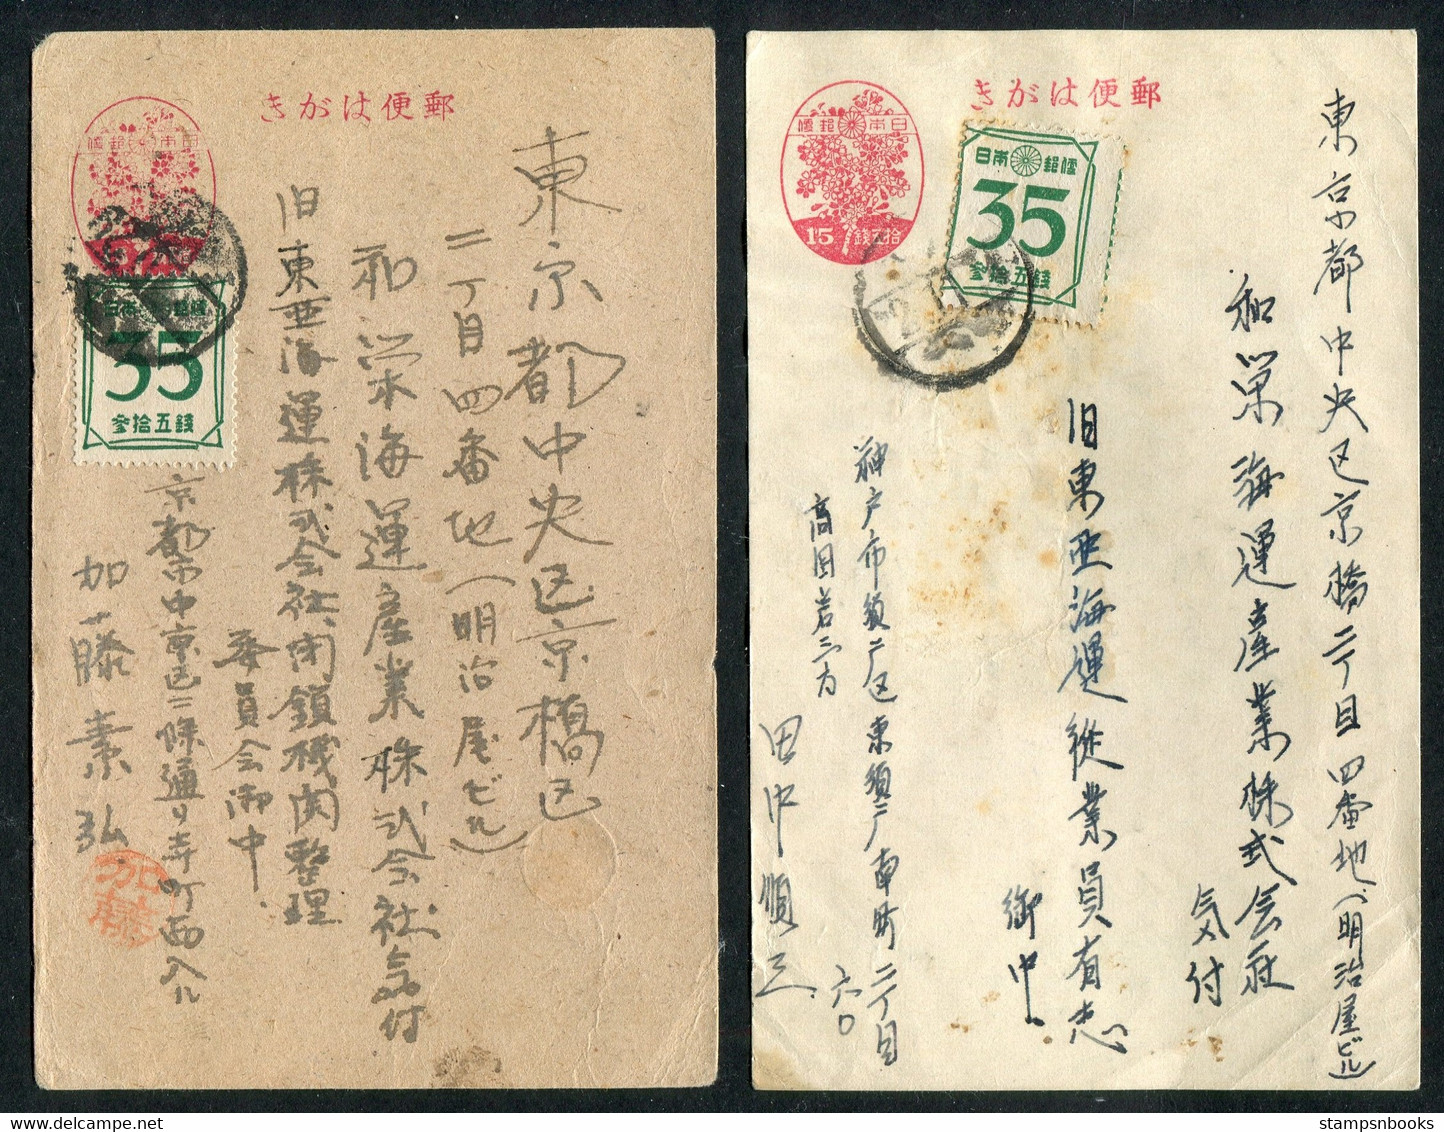 郵便はがき
日本郵便
日本郵便
35
参拾五銭
東京都中央区京橋区
二丁目四番地(明治屋ビル)
和栄海運産業株式会社気付
旧東亜海運株式会社閉鎖機関整理
委員会御中
京都市中京区二條通り寺町西入ル
加藤素弘
加藤
郵便はがき
日本郵便
15
拾五銭
日本郵便
35
参拾五銭
東京都中央区京橋二丁目四番地(明治屋ビル)
和栄海運産業株式会社
気付
旧東亜海運従業員有志
御中
神戸市須磨区東須磨南町二丁目
六〇
田中順三
stampsnbooks.com